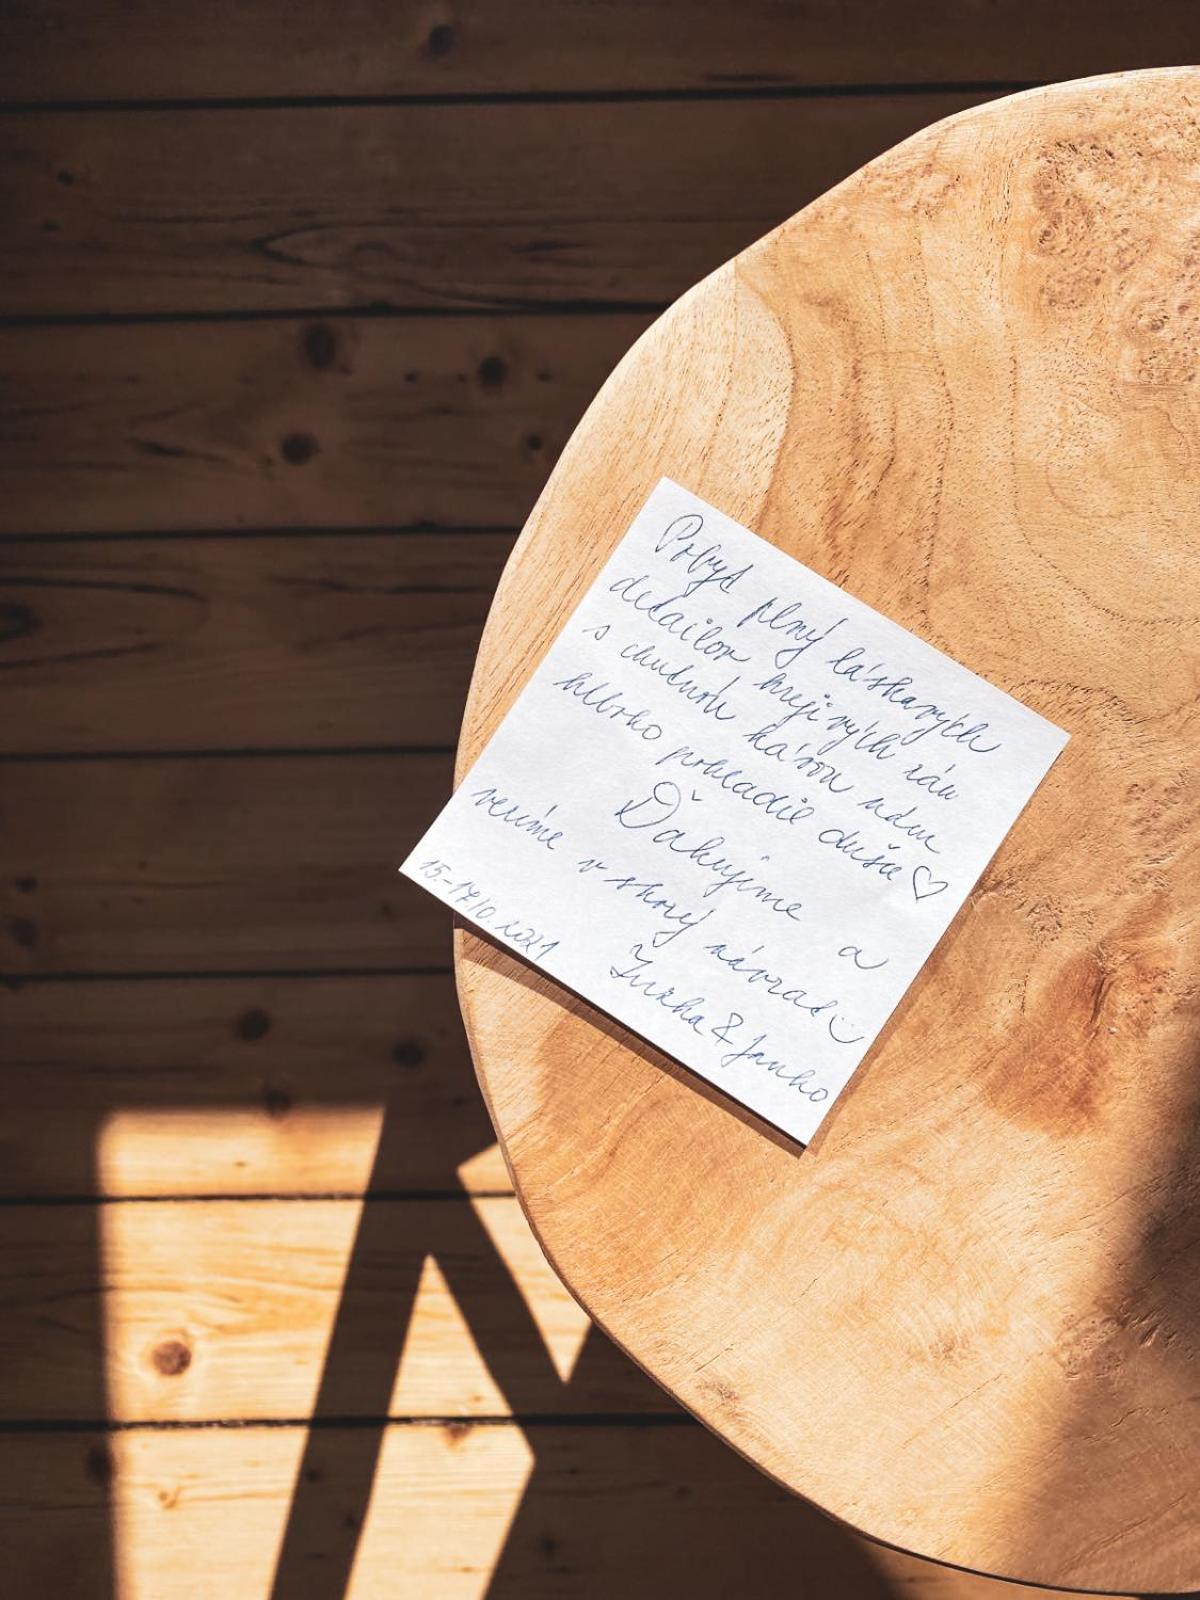 Pobyt plný láskavých
detailov hrejivých rán
s chutnou kávou nám
hlboko pohladil dušu ♡
Ďakujeme a
veríme v skorý návrat :)
15.-17.10.2021 Zuzka & Janko